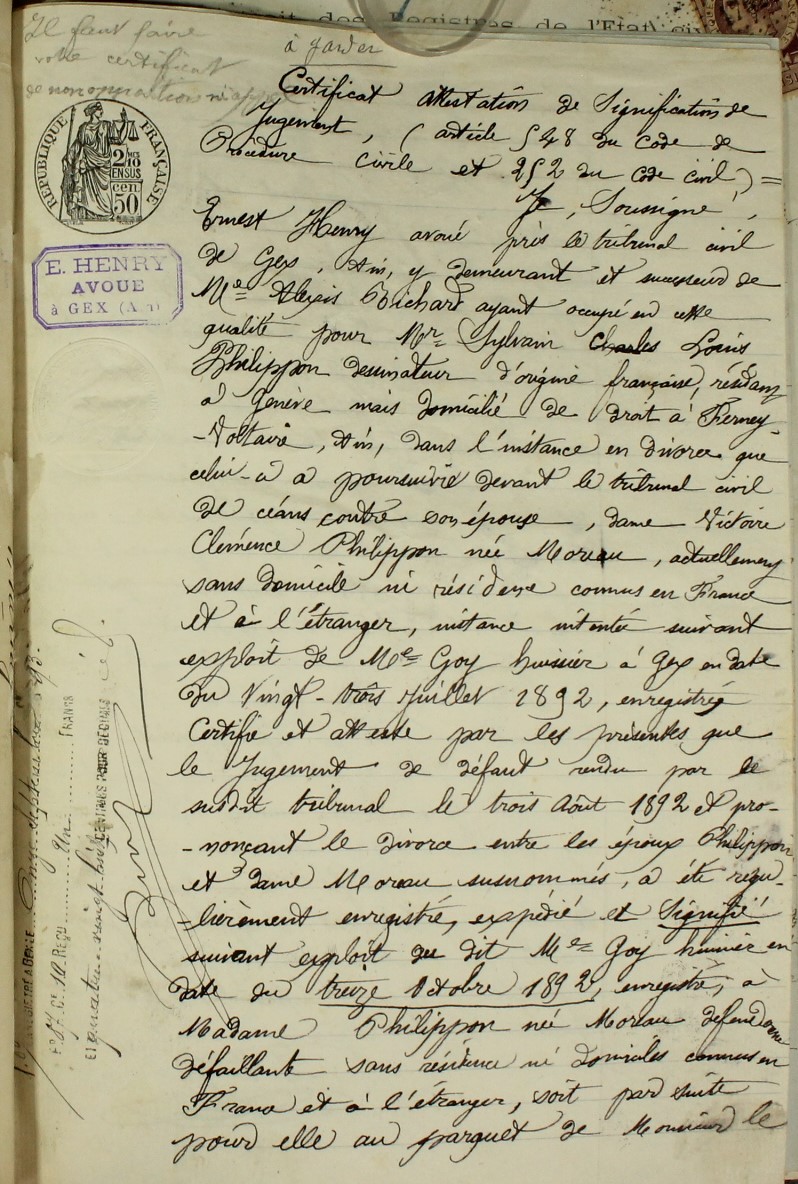 des Registres de l'Etat civ
Il faut faire
votre certificat
de non opposition ni appel
à garder
RÉPUBLIQUE FRANÇAISE
2/10
EN SUS
50 cen
E. HENRY
AVOUÉ
à GEX (Ain)
Certificat attestation de Signification de
Jugement, (article 548 du Code de
Procédure civile et 252 du Code civil) =
Je, Soussigné,
Ernest Henry avoué près le tribunal civil
de Gex, Ain, y demeurant et successeur de
Me Alexis Bichard ayant occupé en cette
qualité pour Mr Sylvain Charles Louis
Philippon dessinateur d'origine française, résidant
à Genève mais domicilié de droit à Ferney-
-Voltaire, Ain, dans l'instance en divorce que
celui-ci a poursuivie devant le tribunal civil
de céans contre son épouse, dame Victoire
Clémence Philippon née Moreau, actuellement
sans domicile ni résidence connus en France
et à l'étranger, instance intentée suivant
exploit de Me Goy huissier à Gex en date
du Vingt-trois Juillet 1892, enregistré
Certifie et atteste par les présentes que
le Jugement de défaut rendu par le
susdit tribunal le trois Août 1892 et pro-
-nonçant le divorce entre les époux Philippon
et dame Moreau susnommés, a été régu-
-lièrement enregistré, expédié et Signifié
suivant exploit du dit Me Goy huissier en
date du treize Octobre 1892, enregistré, à
Madame Philippon née Moreau défenderesse
défaillante sans résidence ni domiciles connus en
France et à l'étranger, soit par suite
pour elle au parquet de Monsieur le